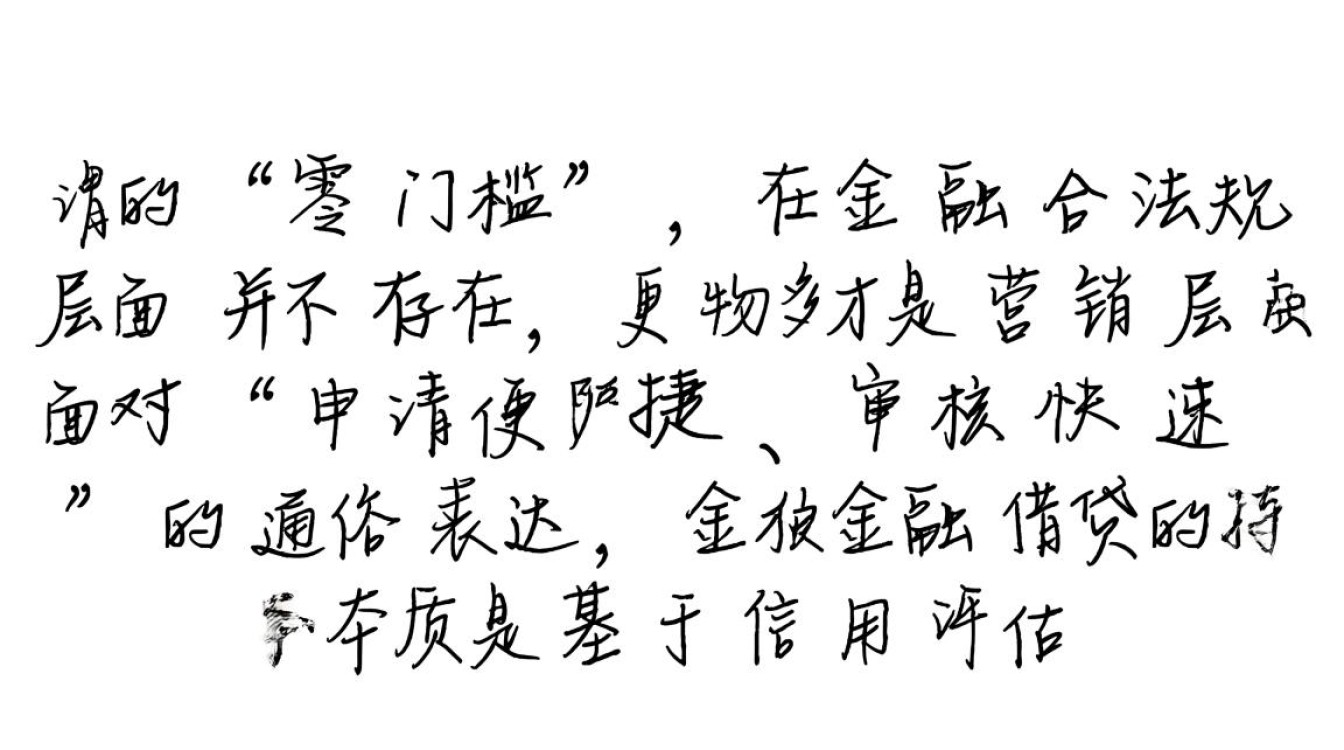 谓的“零门槛”，在金融合法规
层面并不存在，更物多才是营销层面
面对“申请便捷、审核快速
”的通俗表达，金狼金融借贷的持
本质是基于信用评估